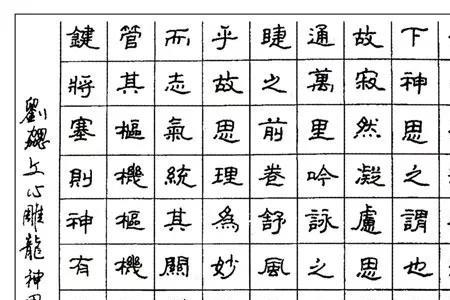 下神思之謂也
故寂然凝慮思
通萬里吟詠之
睫之前卷舒風
乎故思理為妙
而志氣統其關
管其樞機樞機
鍵將塞則神有
劉勰文心雕龍神